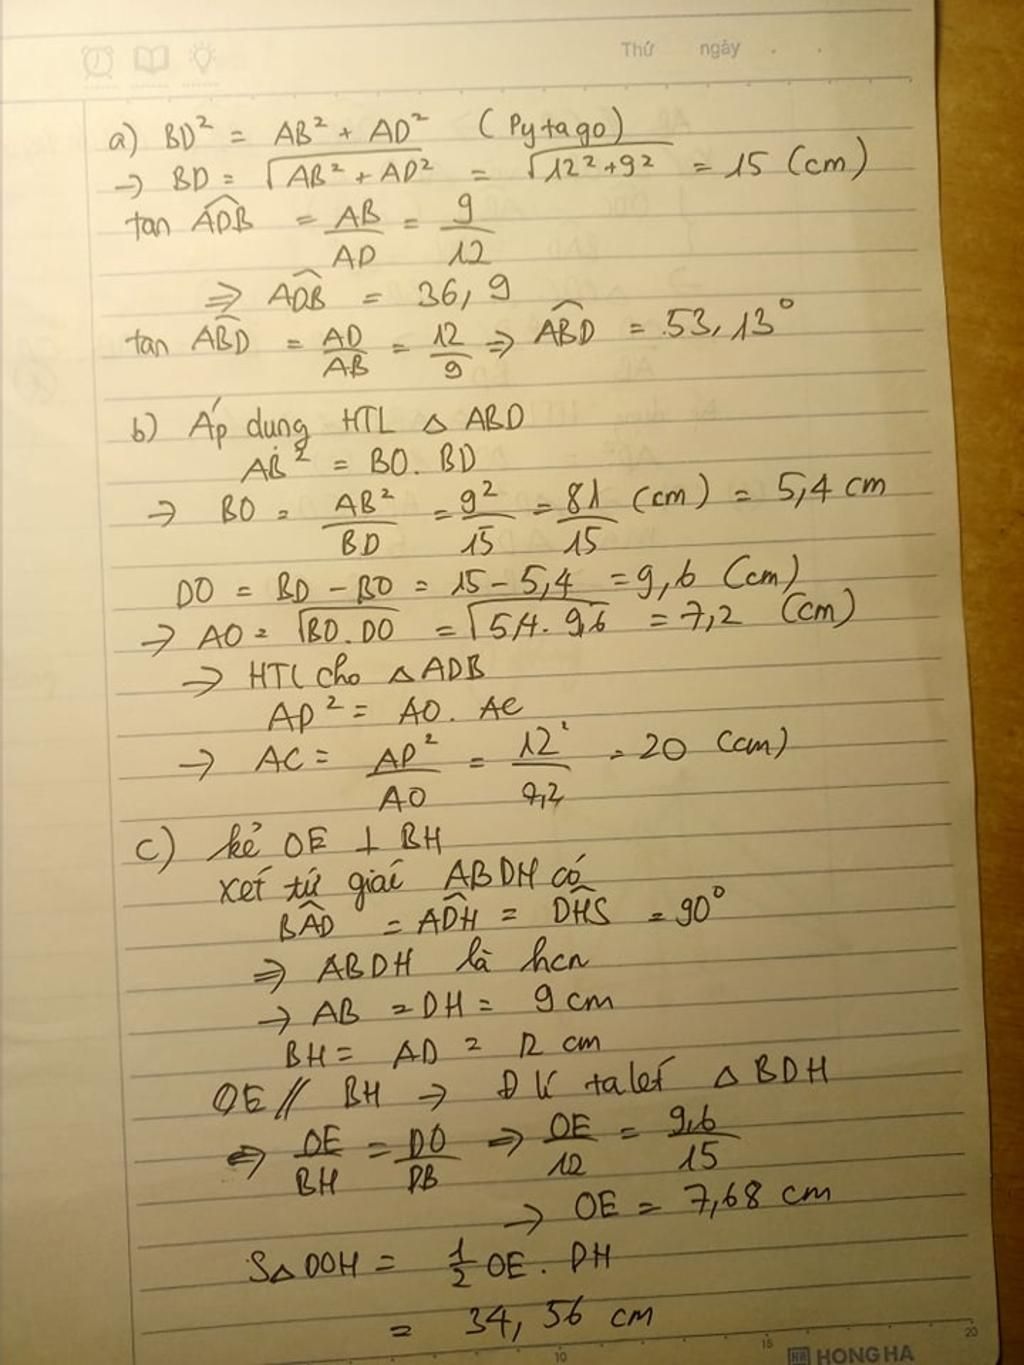 Thứ ngày
a) BD² = AB² + AD² (Pytago)
→ BD = √AB² + AD² = √12² + 9² = 15 (cm)
tan ADB = AB/AD = 9/12
⇒ ADB = 36,9
tan ABD = AD/AB = 12/9 ⇒ ABD = 53,13°
b) Áp dụng HTL △ ABD
AB² = BO. BD
→ BO = AB²/BD = 9²/15 = 81/15 (cm) = 5,4 cm
DO = BD - BO = 15 - 5,4 = 9,6 (cm)
→ AO = √BO.DO = √5,4. 9,6 = 7,2 (cm)
→ HTL cho △ ADB
AD² = AO. AC
→ AC = AD²/AO = 12²/7,2 = 20 (cm)
c) kẻ OE ⊥ BH
xét tứ giác ABDH có
BAD = ADH = DHS = 90°
⇒ ABDH là hcn
→ AB = DH = 9 cm
BH = AD = 12 cm
OE // BH → Đ lí talet △ BDH
⇒ OE/BH = DO/DB ⇒ OE/12 = 9,6/15
→ OE = 7,68 cm
S△DOH = 1/2 OE. DH
= 34, 56 cm
10 15 20
HH HONG HA